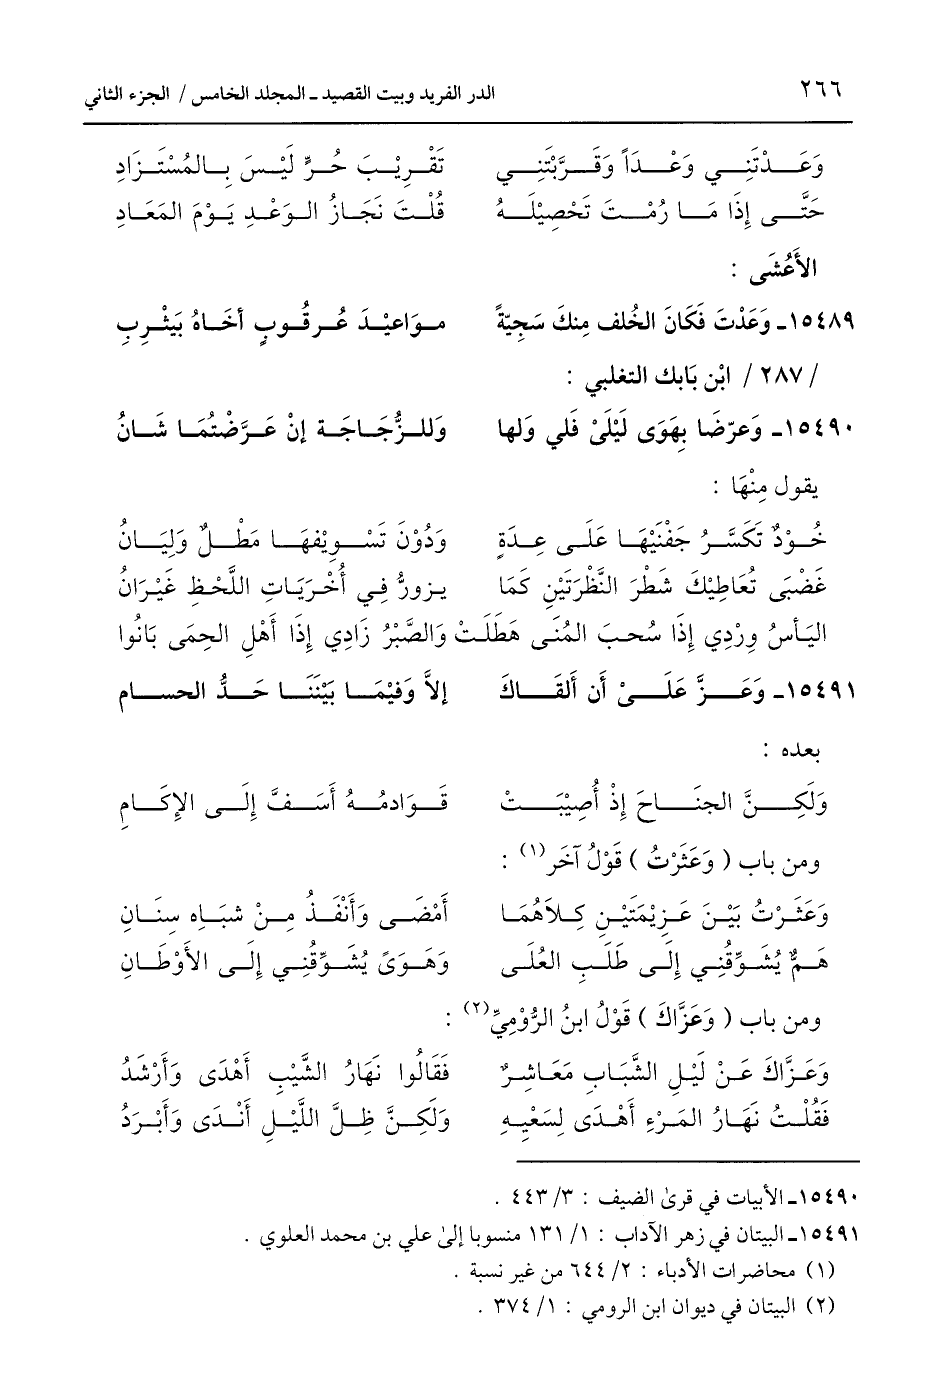 ٢٦٦ الدر الفريد وبيت القصيد ـ المجلد الخامس / الجزء الثاني
وَعَـدْتَنِـي وَعْـداً وَقَـرَّبْتَنِـي تَقْـرِيْـبَ حُـرٍّ لَيْـسَ بِـالمُسْتَـزَادِ
حَتَّـى إِذَا مَـا رُمْـتَ تَحْصِيْلَـهُ قُلْـتَ نَجَـازُ الـوَعْـدِ يَـوْمَ المَعَـادِ
الأَعْشَى :
١٥٤٨٩ـ وَعَدْتَ فَكَانَ الخُلف مِنكَ سَجِيّةً مـوَاعيْـدَ عُـرقُـوبٍ أخَـاهُ بَيَثْـرِبِ
/ ٢٨٧ / ابْن بَابك التغلبي :
١٥٤٩٠ـ وَعرّضَا بِهَوَى لَيْلَىْ فَلي وَلها وَللـزُّجَـاجَـة إنْ عَـرَّضْتُمَـا شَـانُ
يقول مِنْهَا :
خُـوْدٌ تَكَسَّـرُ جَفْنَيْهَـا عَلَـى عِـدَةٍ وَدُوْنَ تَسْـوِيْفهَـا مَطْـلٌ وَلِيَـانُ
غَضْبَى تُعَاطِيْكَ شَطْرَ النَّظْرَتَيْنِ كَمَا يـزورُّ فِـي أُخْـرَيَـاتِ اللَّحْـظِ غَيْـرَانُ
اليَـأسُ وِرْدِي إِذَا سُحبَ المُنَى هَطَلَتْ وَالصَّبْرُ زَادِي إِذَا أَهْلِ الحِمَى بَانُوا
١٥٤٩١ـ وَعَـزَّ عَلَـىْ أن ألقَـاكَ إلاَّ وَفيْمَـا بَيْنَنَـا حَـدُّ الحسـام
بعده :
وَلَكِـنَّ الجنَـاحَ إِذْ أُصِيْبَـتْ قَـوَادمُـهُ أَسَـفَّ إِلَـى الإِكَـامِ
ومن باب ( وَعَثَرْتُ ) قَوْلُ آخَر(١) :
وَعَثَـرْتُ بَيْـنَ عَـزِيْمَتَيْـنِ كِـلاَهُمَـا أَمْضَـى وَأَنْفَـذُ مِـنْ شبَـاهِ سِنَـانِ
هَـمٌّ يُشَـوِّقُنِـي إِلَـى طَلَـبِ العُلَـى وَهَـوَىً يُشَـوِّقُنِـي إِلَـى الأَوْطَـانِ
ومن باب ( وَعَزَّاكَ ) قَوْلُ ابنُ الرُّوْمِيِّ(٢) :
وَعَـزَّاكَ عَـنْ لَيْـلِ الشَّبَـابِ مَعَـاشِـرٌ فَقَالُوا نَهَارُ الشَّيْبِ أَهْدَى وَأَرْشَدُ
فَقُلْـتُ نَهَـارُ المَـرْءِ أَهْـدَى لِسَعْيِـهِ وَلَكِـنَّ ظِـلَّ اللَّيْـلِ أَنْـدَى وَأَبْـرَدُ
١٥٤٩٠ـ الأبيات في قرىٰ الضيف : ٣/ ٤٤٣ .
١٥٤٩١ـ البيتان في زهر الآداب : ١/ ١٣١ منسوبا إلىٰ علي بن محمد العلوي .
(١) محاضرات الأدباء : ٢/ ٦٤٤ من غير نسبة .
(٢) البيتان في ديوان ابن الرومي : ١/ ٣٧٤ .